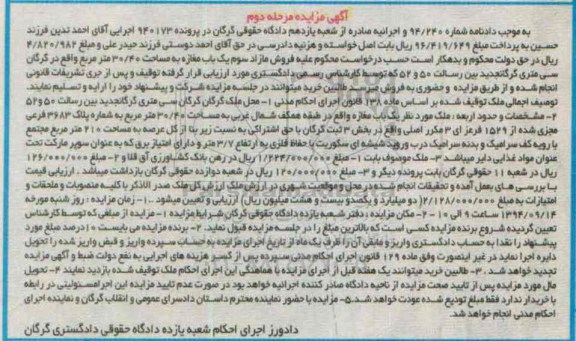 آگهی مزایده مرحله دوم
به موجب دادنامه شماره ۹۴/۲۴۰ و اجرائیه صادره از شعبه یازدهم دادگاه حقوقی گرگان در پرونده ۹۴۰۱۷۳ اجرایی آقای احمد تدین فرزند
حسین به پرداخت مبلغ ۹۶/۴۱۹/۶۴۹ ریال بابت اصل خواسته و هزینه دادرسی در حق آقای احمد دوستی فرزند حیدر علی و مبلغ ۴/۸۲۰/۹۸۲
ریال در حق دولت محکوم و بدهکار است حسب درخواست محکوم علیه فروش مازاد سوم یک باب مغازه به مساحت ۳۰/۴۰ متر مربع واقع در گرگان
سی متری گرگانجدید بین رسالت ۵۰ و ۵۲ که توسط کارشناس رسمی دادگستری مورد ارزیابی قرار گرفته توقیف و پس از جری تشریفات قانونی
انجام شده و از طریق مزایده و حضوری به فروش میرسد طالبین خرید میتوانند در جلسه مزایده شرکت و پیشنهاد خود را ارایه و تسلیم نمایند.
توصیف اجمالی ملک توقیف شده بر اساس ماده ۱۳۸ قانون اجرای احکام مدنی ۱- محل ملک گرگان گرگان سی متری گرگانجدید بین رسالت ۵۰ و ۵۲
۲- مشخصات و حدود اربعه : ملک مورد نظر یک باب مغازه واقع در طبقه همکف شمال غربی به مساحت ۳۰/۴۰ متر مربع به شماره پلاک ۳۶۸۳ فرعی
مجزی شده از ۱۵۲۹ قرمز ای ۳ مکرر اصلی واقع در بخش ۳ ثبت گرگان با حق اشتراکی به نسبت زیر بنا از کل عرصه به مساحت ۲۱۰ متر مربع مجتمع
با رویه کف سرامیک و بدنه سرامیک درب ورود شیشه ای سکوریت با حفاظ فلزی به ارتفاع ۳/۷ متر و دارای امتیاز برق که به عنوان سوپر مارکت تحت
عنوان مواد غذایی دایر میباشد ۳- ملک موصوف بابت ۱- مبلغ ۱/۲۲۴/۰۰۰/۰۰۰ ریال در رهن بانک کشاورزی آق قلا و ۲- مبلغ ۱۲۶/۰۰۰/۰۰۰
ریال در شعبه ۱۱ حقوقی گرگان بابت پرونده دیگر و ۳- مبلغ ۱۲۰/۰۰۰/۰۰۰ ریال در شعبه دوازده حقوقی گرگان بازداشت میباشد . ارزیابی قیمت
با بررسی های بعمل آمده و تحقیقات انجام شده در محل و موقعیت شهری در ارزش ملک ارزش کل ملک صدر الاذکر با کلیه منصوبات و ملحقات و
امتیازات به مبلغ ۲/۱۲۸/۰۰۰/۰۰۰(دو میلیارد و یکصدو بیست و هشت میلیون ریال) ارزیابی و تعیین میشود ..۱- زمان مزایده : روز شنبه مورخه
۱۳۹۴/۰۹/۱۴ ساعت ۹ الی ۱۰ ۲- مکان مزایده : دفتر شعبه یازده دادگاه حقوقی گرگان شرایط مزایده ۱- مزایده از مبلغی که توسط کارشناس
تعیین گردیده شروع برنده مزایده کسی است که بالاترین مبلغ را در جلسه مزایده قبول نماید. ۲- برنده مزایده می بایست ۱۰ درصد مبلغ مورد
پیشنهاد را نقدا به حساب دادگستری واریز و مابقی آن را ظرف یک ماه از تاریخ اجرای مزایده به حساب سپرده واریز و قبض واریز شده را تحویل
دایره اجرا نماید در غیر اینصورت وفق ماده ۱۲۹ قانون اجرای احکام مدنی سپرده پس از کسر هزینه های اجرایی به نفع دولت ضبط و آگهی مزایده
تجدید خواهد شد . ۳- طالبین خرید میتوانند یک هفته قبل از اجرای مزایده با هماهنگی این اجرای احکام ملک توقیف شده بازدید نمایند ۴- تحویل
مال مورد مزایده پس از تایید صحت مزایده از ناحیه دادگاه صادر کننده اجرائیه خواهد بود در صورت عدم تایید مزایده این اجرا مسئولیتی در رابطه
با خریدار ندارد فقط مبلغ تودیع شده عودت خواهد شد.۵- مزایده با حضور نماینده محترم دادستان دادسرای عمومی و انقلاب گرگان و نماینده اجرای
احکام مدنی انجام خواهد شد.
دادورز اجرای احکام شعبه یازده دادگاه حقوقی دادگستری گرگان